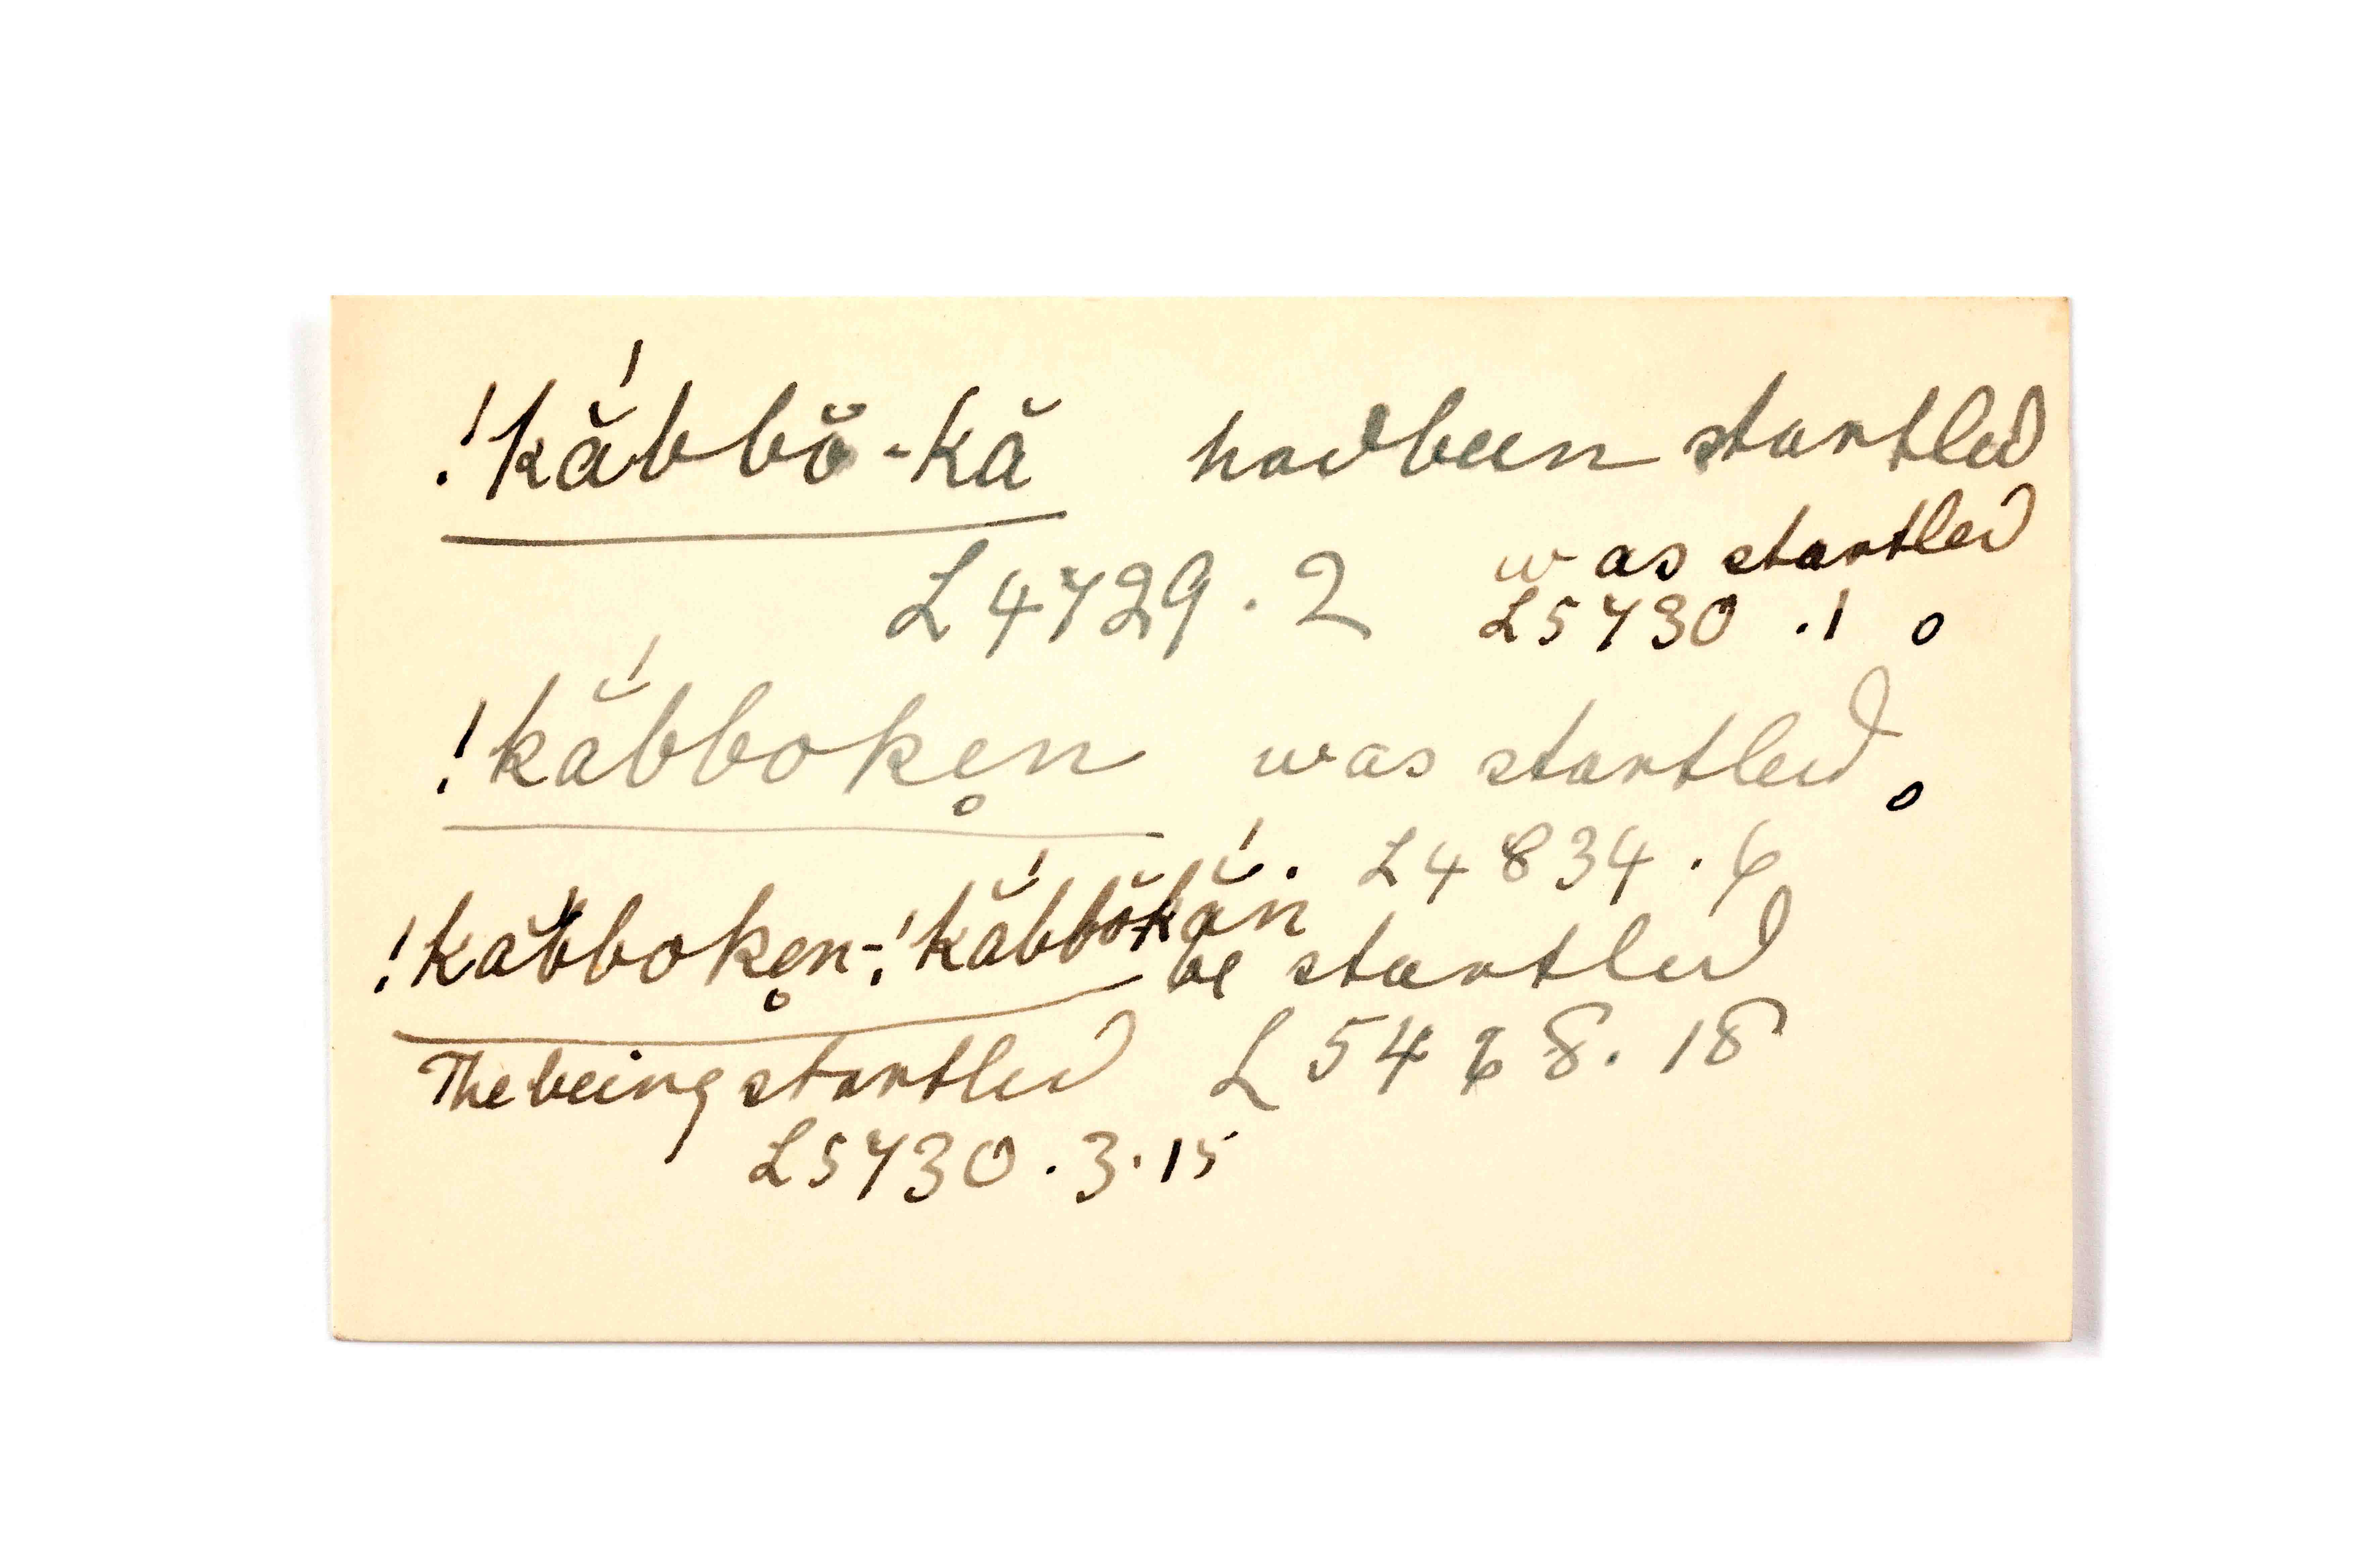 !kắbbŏ-kă had been startled
L4729.2 was startled
L5730.1 o
!kắbboke̥n was startled o
L4834.6
!kăbboke̥n-!kắbbŏkắn be startled
The being startled L5468.18
L5730.3.15